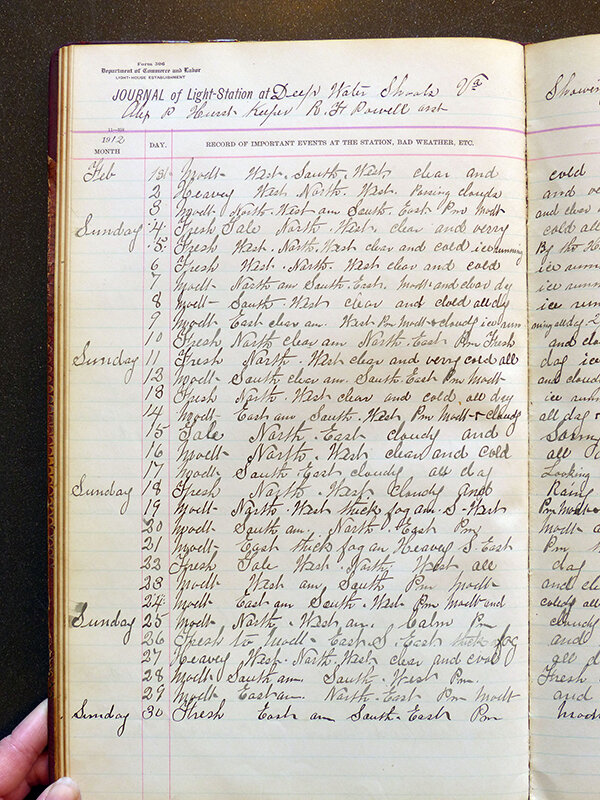 Form 306
Department of Commerce and Labor
LIGHT-HOUSE ESTABLISHMENT
JOURNAL of Light-Station at Deep Water Shoals Va
P Hurst Keeper R. H Powell asst
Showin
1912
MONTH DAY. RECORD OF IMPORTANT EVENTS AT THE STATION, BAD WEATHER, ETC.
Feb 1st Modt West. South. West clear and cold
2 Heavey West. North. West. Passing clouds and
3 Modt North. West am South. East Pm Modt and clear
Sunday 4 Fresh Gale North. West clear and verry cold all
5 Fresh West. North. West clear and cold ice running By the
6 Fresh West. North. West clear and cold ice runn
7 Modt North am South. East. Modt and clear dy ice runn
8 Modt South. West clear and clold all dy ice runn
9 Modt East clear am. West Pm Modt & cloudy ice runn ning all dy.
10 Fresh North clear am North. East Pm Fresh and clo
Sunday 11 Fresh North. West clear and verry cold all day ice
12 Modt South clear am. South. East Pm Modt and cloudy
13 Fresh North. West clear and cold all dry ice run
14 Modt East am South. West Pm Modt & cloudy all day
15 Gale North. East cloudy and
16 Modt North. West clear and cold all
17 Modt South East cloudy all day Looking
Sunday 18 Fresh North. West cloudy and Rany
19 Modt North. West thick fog am S. West Pm Modt
20 Modt South am. North. East Pm Modt a
21 Modt East thick fog am Heavey S. East Pm
22 Fresh Gale West. North West all day
23 Modt West am South Pm Modt and cl
24 Modt East am South. West Pm Modt and cloudy all
Sunday 25 Modt North. West am. Calm Pm cloudy
26 Fresh to Modt East. S. East thick fog and
27 Heavey West. North. West clear and cold all d
28 Modt South am. South. West Pm Fresh
29 Modt East am. North. East Pm Modt and
Sunday 30 Fresh East am South. East Pm Modt